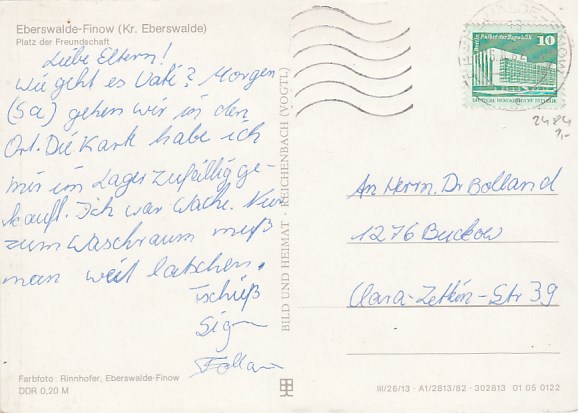 Eberswalde-Finow (Kr. Eberswalde)
Platz der Freundschaft
Liebe Eltern!
Wie geht es Vati? Morgen
(Sa) gehen wir in den
Ort. Die Karte habe ich
mir im Lager zufällig ge-
kauft. Ich war Wache. Nur
zum Waschraum muß
man weit latschen.
Tschüß
Farbfoto: Rinnhofer, Eberswalde-Finow
DDR 0,20 M
BILD UND HEIMAT · REICHENBACH (VOGTL)
Palast der Republik
10
DEUTSCHE DEMOKRATISCHE REPUBLIK
2484
1,-
An Herrn. Dr Bolland
1276 Buckow
Clara-Zetkin-Str 39
III/26/13 · A1/2813/82 · 302813 01 05 0122